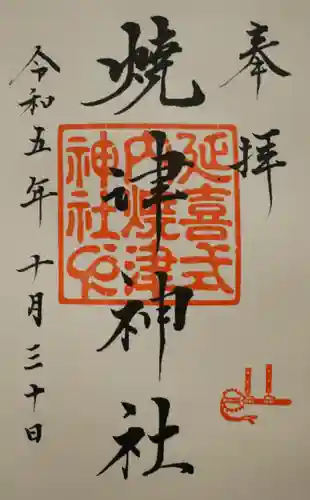 奉拝
焼津神社
延喜式
内焼津
神社之
令和五年十月三十日